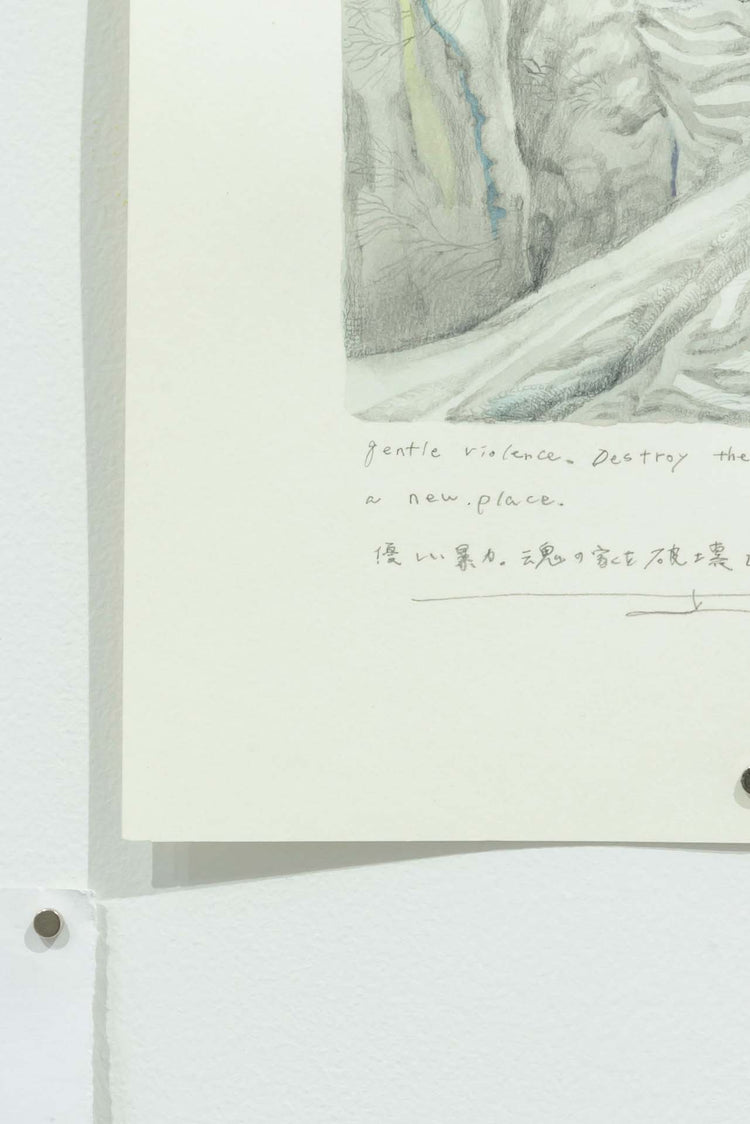 gentle violence. Destroy the
a new place.
優しい暴力。魂の家を破壊